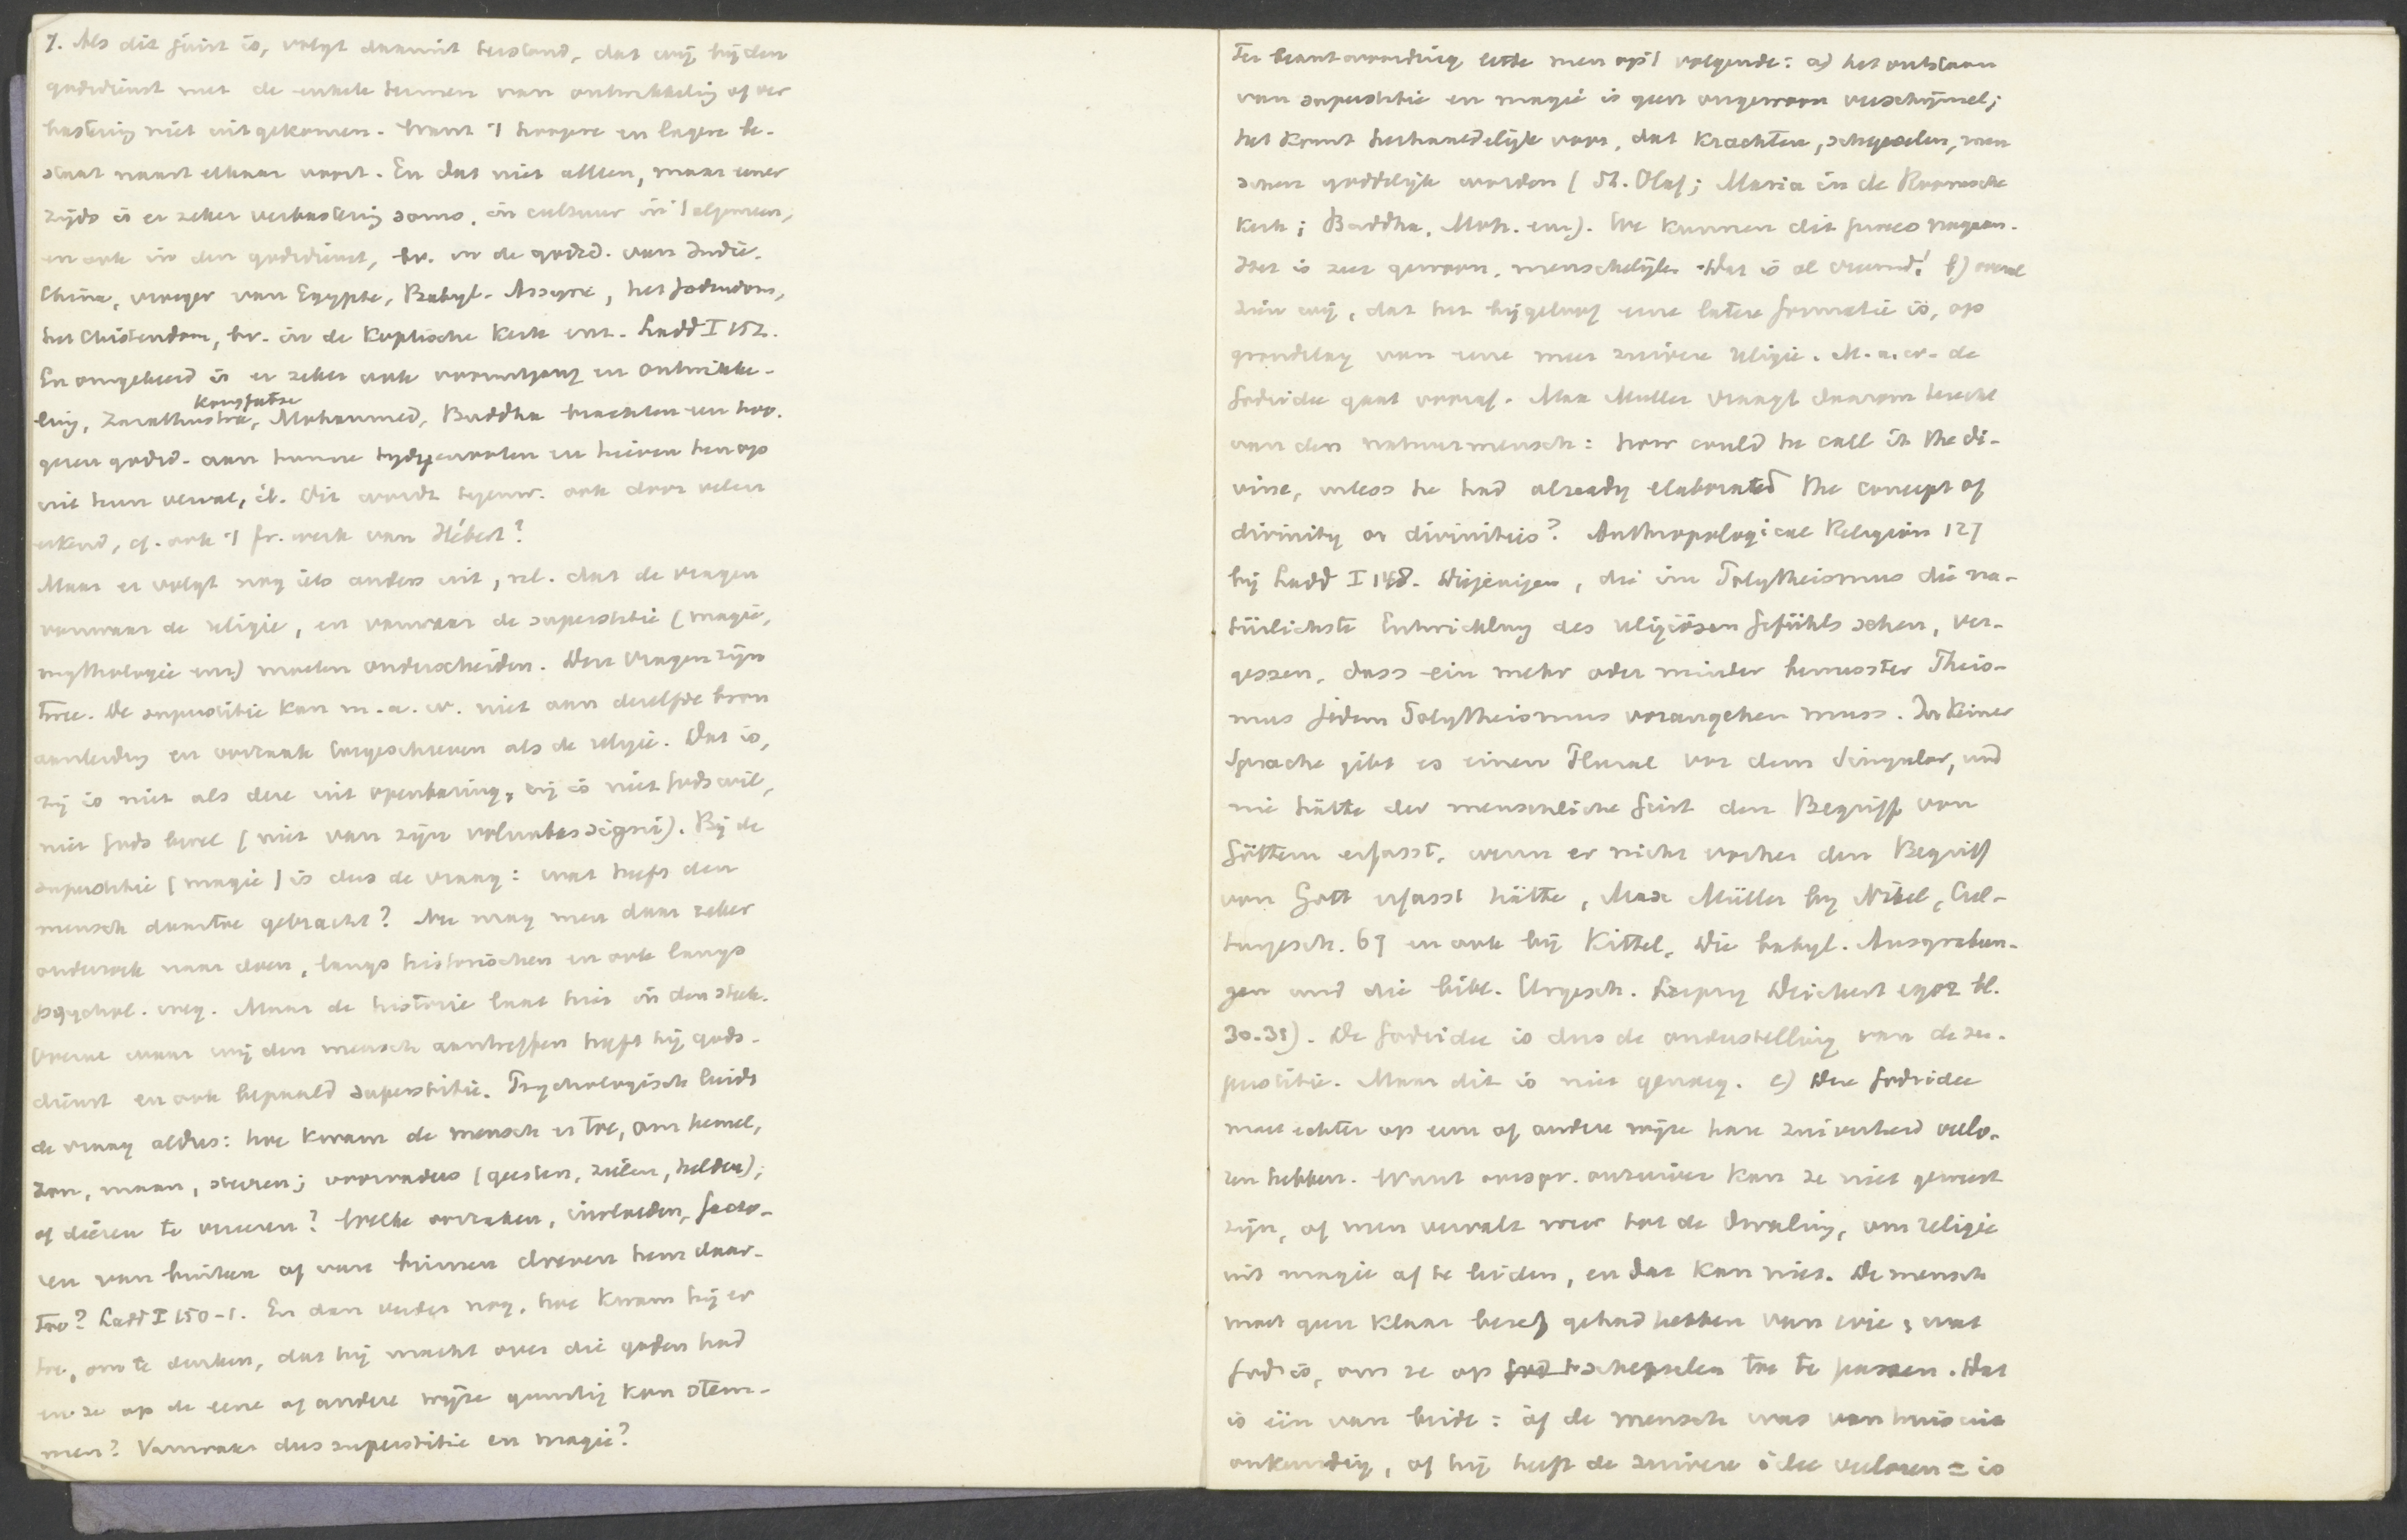 7. Als dit juist is, volgt daaruit terstond, dat wij bij den
godsdienst met de enkele termen van ontwikkeling of ver
bastering niet uitgekomen. Want 't hoogere en lagere be-
staat naast elkaar voort. En dat niet alleen, maar eener
zijds is er zeker verbastering soms, in cultuur in 't algemeen,
en ook in den godsdienst, bv. in de godsd. van Indië,
China, vroeger van Egypte, Babyl. Assyrië, het Jodendom,
het Christendom, bv. in de Koptische Kerk enz. Ladd I 152.
En omgekeerd is er zeker ook vooruitgang en ontwikke-
Kongfutse
ling, Zarathustra, Mohammed, Buddha brachten een hoo-
geren godsd. aan hunne tijdgenooten en hieven hen op
uit hun verval, Dit wordt tegenw. ook door velen
erkend, cf. ook 't fr. werk van Hébert?
Maar er volgt nog iets anders uit, nl. dat de vragen
vanwaar de religie, en vanwaar de superstitie (magie,
mythologie enz) moeten onderscheiden. Deze vragen zijn
twee. De superstitie kan m.a.w. niet aan dezelfde bron
aanleiding en oorzaak toegeschreven als de religie. Dat is,
zij is niet als deze uit openbaring, zij is niet Gods wil,
niet Gods bevel (niet van zijn voluntas signi). Bij de
superstitie (magie) is dus de vraag: wat heeft den
mensch daartoe gebracht? Nu mag men daar zeker
onderzoek naar doen, langs historischen en ook langs
psychol. weg. Maar de historie laat hier in den steek.
Overal waar wij den mensch aantreffen heeft hij gods-
dienst en ook bepaald superstitie. Psychologisch luidt
de vraag aldus: hoe kwam de mensch er toe, om hemel,
zon, maan, sterren; voorvaders (geesten, zielen, helden);
of dieren te vereeren? Welke oorzaken, invloeden, facto-
ren van buiten of van binnen dreven hem daar-
toe? Ladd I 150-1. En dan verder nog, hoe kwam hij er
toe, om te denken, dat hij macht over die goden had
en ze op de eene of andere wijze gunstig kon stem-
men? Vanwaar dus superstitie en magie?
Ter beantwoording lette men op 't volgende: a) het ontstaan
van superstitie en magie is geen ongewoon verschijnsel;
het komt herhaaldelijk voor, dat krachten, schepselen, men
schen goddelijk worden (St. Olaf; Maria in de Roomsche
Kerk; Buddha, Moh. enz). We kunnen dit proces nagaan.
Het is zeer gewoon, menschelijk. Dat is al vreemd! b) overal
zien wij, dat het bijgeloof eene latere formatie is, op
grondslag van eene meer zuivere religie. M.a.w. de
Godsidee gaat vooraf. Max Muller vraagt daarom terecht
van den natuurmensch: how could he call it the di-
vine, unless he had already elaborated the concept of
divinity or divinities? Anthropological Religion 127
bij Ladd I 148. Diejenigen, die im Polytheismus die na-
türlichste Entwicklung des religiösen Gefühls sehen, ver-
gessen, dass ein mehr oder minder bewusster Theis-
mus jedem Polytheismus vorangehen muss. In keiner
Sprache gibt es einen Plural vor dem Singular, und
nie hätte der menschliche Geist den Begriff von
Göttern erfasst, wenn er nicht vorher den Begriff
von Gott erfasst hätte, Max Müller bij Nikel,
69 en ook bij Kittel, Die babyl. Ausgrabun-
gen und die bibl. Urgesch. Leipzig Deichert 1902 bl.
30.31). De Godsidee is dus de onderstelling van de su-
perstitie. Maar dit is niet genoeg. c) Deze Godsidee
moet echter op eene of andere wijze hare zuiverheid verlo-
ren hebben. Want oorspr. onzuiver kan ze niet geweest
zijn, of men vervalt weer tot de dwaling, om religie
uit magie af te leiden, en dat kan niet. De mensch
moet geen klaar besef gehad hebben van wie, wat
God is, om ze op schepselen toe te passen. Dat
is één van beide: òf de mensch was van huis uit
onkundig, of hij heeft de zuivere idee verloren = is